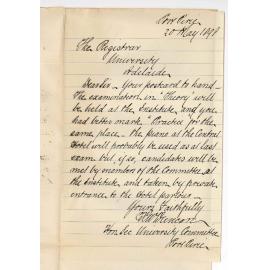 Port Pirie
20 May 1898
The Registrar
University
Adelaide
Dear Sir, Your postcard to hand —
the examination in "Theory" will
be held at the Institute and you
had better mark "Practice" for the
same place — the piano at the Central
Hotel will probably be used as at last
exam but, if so, candidates will be
met by members of the Committee at
the Institute and taken by private
entrance to the Hotel parlour —
Yours Faithfully
Hon Sec University Committee
Port Pirie